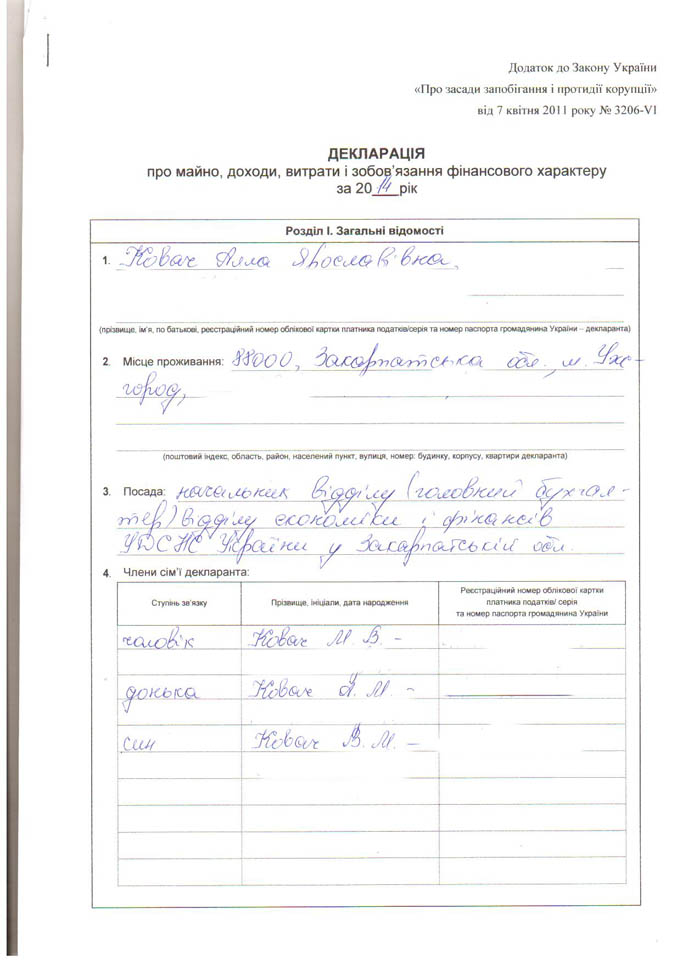 Додаток до Закону України
«Про засади запобігання і протидії корупції»
від 7 квітня 2011 року № 3206-VI
ДЕКЛАРАЦІЯ
про майно, доходи, витрати і зобов’язання фінансового характеру
за 2014 рік
Розділ І. Загальні відомості
1. Ковач Алла Ярославівна,
(прізвище, ім’я, по батькові, реєстраційний номер облікової картки платника податків/серія та номер паспорта громадянина України – декларанта)
2. Місце проживання: 88000, Закарпатська обл., м. Уж-
город,
(поштовий індекс, область, район, населений пункт, вулиця, номер: будинку, корпусу, квартири декларанта)
3. Посада: начальник відділу (головний бухгал-
тер) відділу економіки і фінансів
УДСНС України у Закарпатській обл.
4. Члени сім’ї декларанта:
Ступінь зв’язку Прізвище, ініціали, дата народження Реєстраційний номер облікової картки
платника податків/ серія
та номер паспорта громадянина України
чоловік Ковач М. В. -
донька Ковач Я. М. -
син Ковач В. М. -